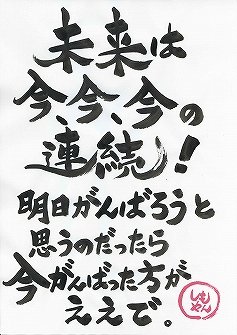 未来は
今、今、今の
連続！
明日がんばろうと
思うのだったら
今がんばった方が
ええで。